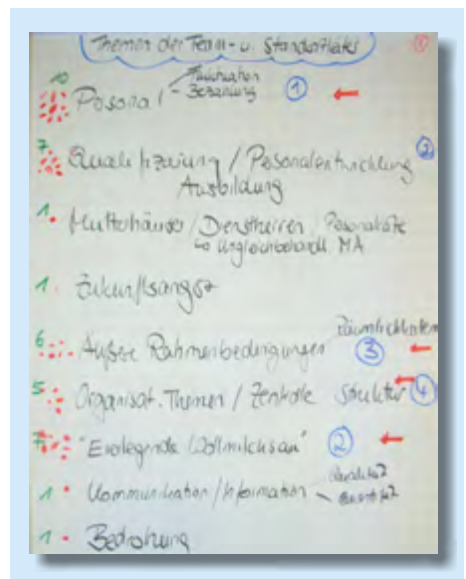 Themen der Team- u. Standortleiter
10 Personal - Fluktuation ① ←
- Bezahlung
7 Qualifizierung / Personalentwicklung ②
Ausbildung
1 Mutterhäuser / Dienstherren, Personalräte
↳ Ungleichbehandl. MA
1 Zukunftsangst
Räumlichkeiten
6 Äußere Rahmenbedingungen ③ ←
5 Organisat. Themen / zentrale Struktur ④ ←
7 "Eierlegende Wollmilchsau" ② ←
1 Kommunikation / Information - Qualität?
- Quantität?
1 Bedrohung